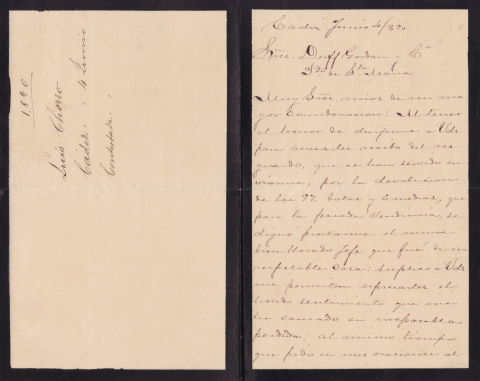 1890
Luis Chorro
Cadiz 4 Junio
Contestada
Cadiz Junio 4/890
Sres. Duff Gordon y Cª
Pto de Sta Maria
Muy Sres. mios de mi ma
yor Consideracion: Al tener
el honor de dirigirme a Vds
para acusarles recibo del res
guardo, que se han servido
por la devolucion
de las 92 Botas y que
para la pasada Vendimia, se
dignó prestarme el nunca
bien llorado Jefe que fué de esa
respetable casa; suplico a Vds
me permitan expresarles el
hondo sentimiento que me
ha causado su irreparable
perdida; al mismo tiempo
que pido en mis oraciones al